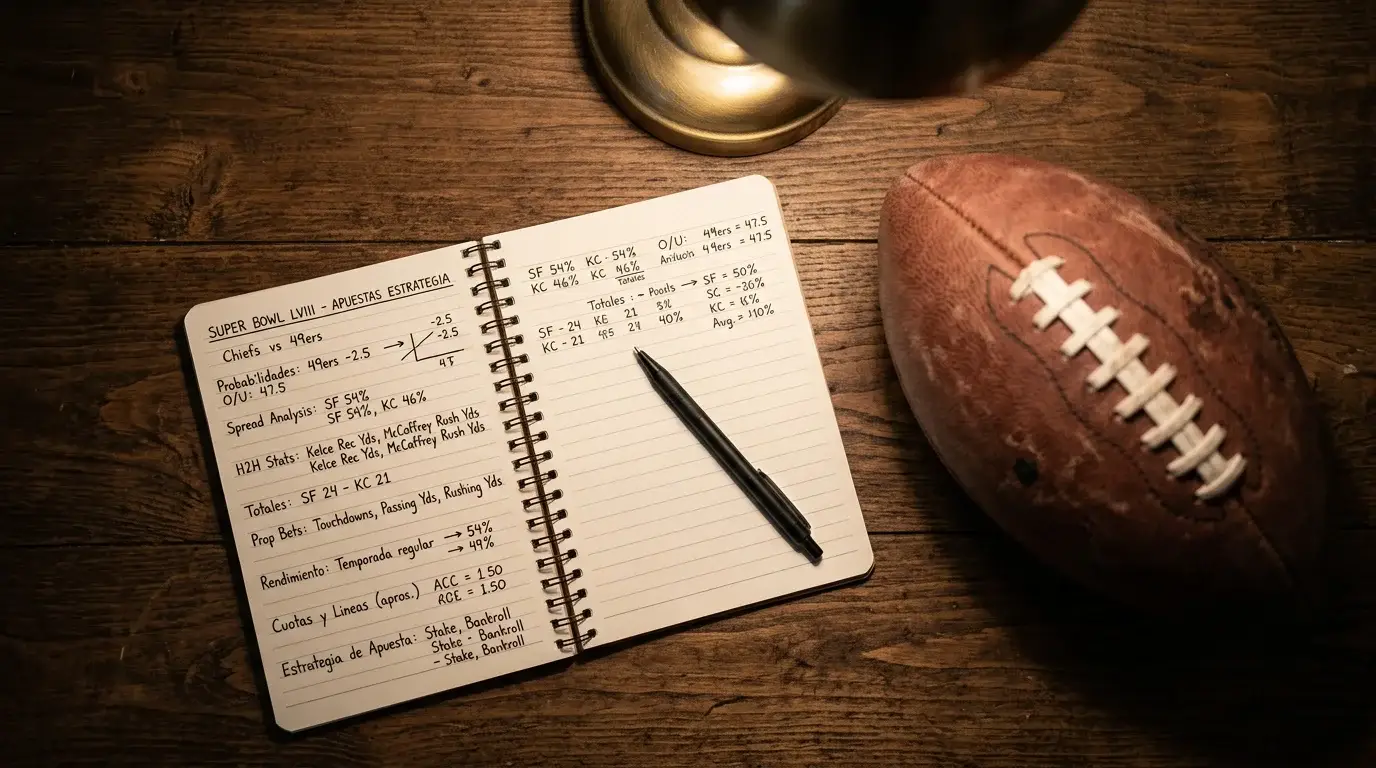 SUPER BOWL LVIII - APUESTAS ESTRATEGIA
Chiefs vs 49ers
Probabilidades: 49ers -2.5 → -2.5
-2.5
O/U: 47.5
Spread Analysis: SF 54%
SF 54%, KC 46%
H2H Stats: Kelce Rec Yds, McCaffrey Rush Yds
Kelce Rec Yds, McCaffrey Rush Yds
Totales: SF 24 - KC 21
Prop Bets: Touchdowns, Passing Yds, Rushing Yds
Rendimiento: Temporada regular → 54%
→ 49%
Cuotas y Lineas (apros.) ACC = 1.50
RCE = 1.50
Estrategia de Apuesta: Stake, Bankroll
Stake - Bankroll
- Stake, Bankroll
SF 54% KC - 54%
KC 46% KC 46%
Totales
O/U: 49ers = 47.5
49ers = 47.5
Totales: - → SF = 50%
SC = -36%
KC =
Avg. =
SF - 24 KE 21 3%
KC - 21 24 40%